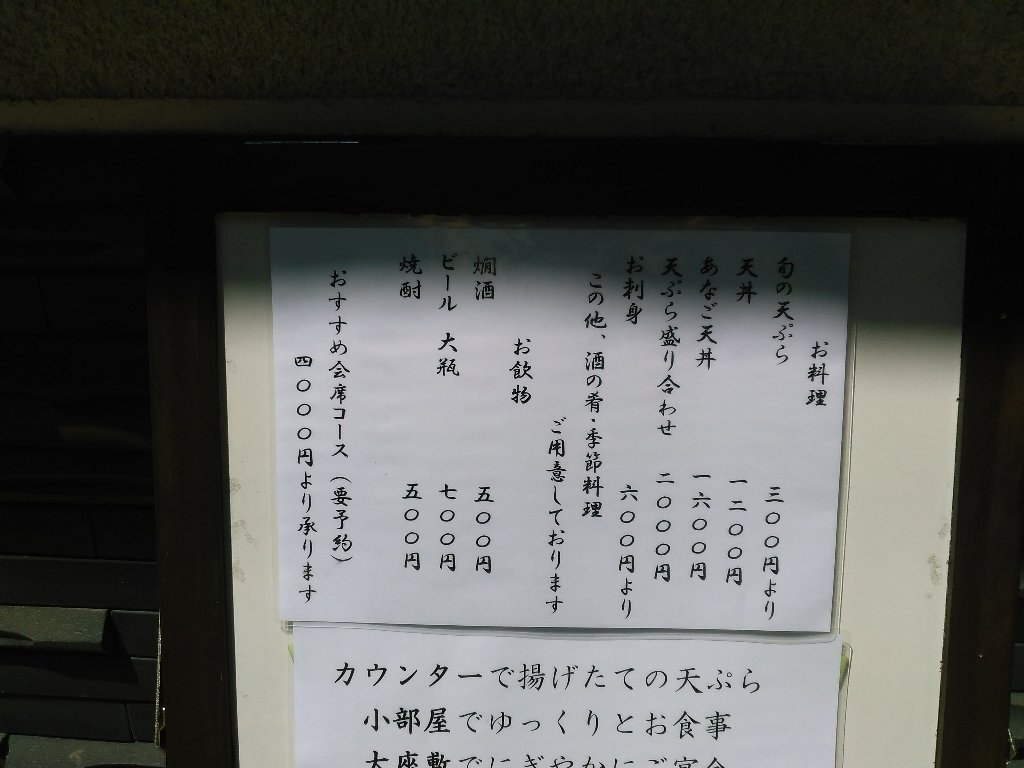 お料理
旬の天ぷら 三〇〇円より
天丼 一二〇〇円
あなご天丼 一六〇〇円
天ぷら盛り合わせ 二〇〇〇円
お刺身 六〇〇円より
この他、酒の肴・季節料理
ご用意しております
お飲物
燗酒 五〇〇円
ビール 大瓶 七〇〇円
焼酎 五〇〇円
おすすめ会席コース（要予約）
四〇〇〇円より承ります
カウンターで揚げたての天ぷら
小部屋でゆっくりとお食事
大座敷でにぎやかにご宴会